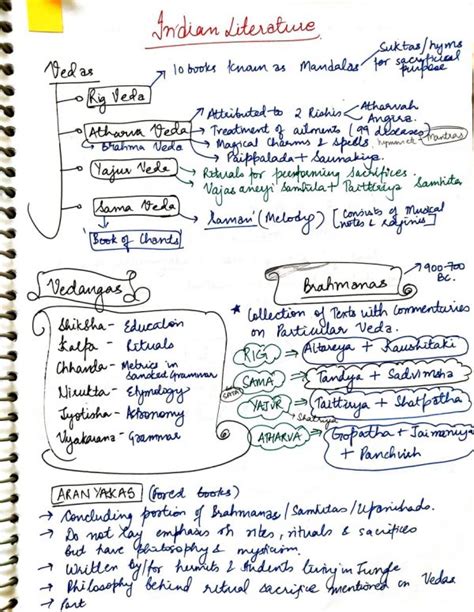 Indian Literature
Vedas
Suktas/hyms
for sacrificial
purpose
Rig Veda
10 books known as Mandalas
Atharva Veda
Brahma Veda
Attributed to 2 Rishis
Atharvah
Angira
Treatment of ailments (99 diseases)
mantras
Magical Charms & Spells
Paippalada + Saunakiya
Yajur Veda
Rituals for performing sacrifices
Vajasaneyi Samhita + Taittiriya Samhita
Sama Veda
'Saman' (Melody)
[Consists of Musical
notes & Raginis]
Book of Chants
Vedangas
Shiksha - Education
Kalpa - Rituals
Chhanda - Metrics in
Sanskrit Grammar
Nirukta - Etymology
Jyotisha - Astronomy
Vyakarana - Grammar
Brahmanas
900-700
BC.
★ Collection of Texts with Commentaries
on Particular Veda.
RIG
Aitareya + Kaushitaki
SAMA
Tandya + Sadvimsha
YAJUR
Taittiriya + Shatpatha
ATHARVA
Gopatha + Jaiminiya
+ Panchvish
ARANYAKAS (Forest books)
→ Concluding portion of Brahmanas / Samhitas / Upanishads.
→ Do not lay emphasis on rites, rituals & sacrifices
but have philosophy & mysticism.
→ Written by/for hermits & students living in Jungle
→ Philosophy behind ritual sacrifice mentioned on Vedas
→ Part